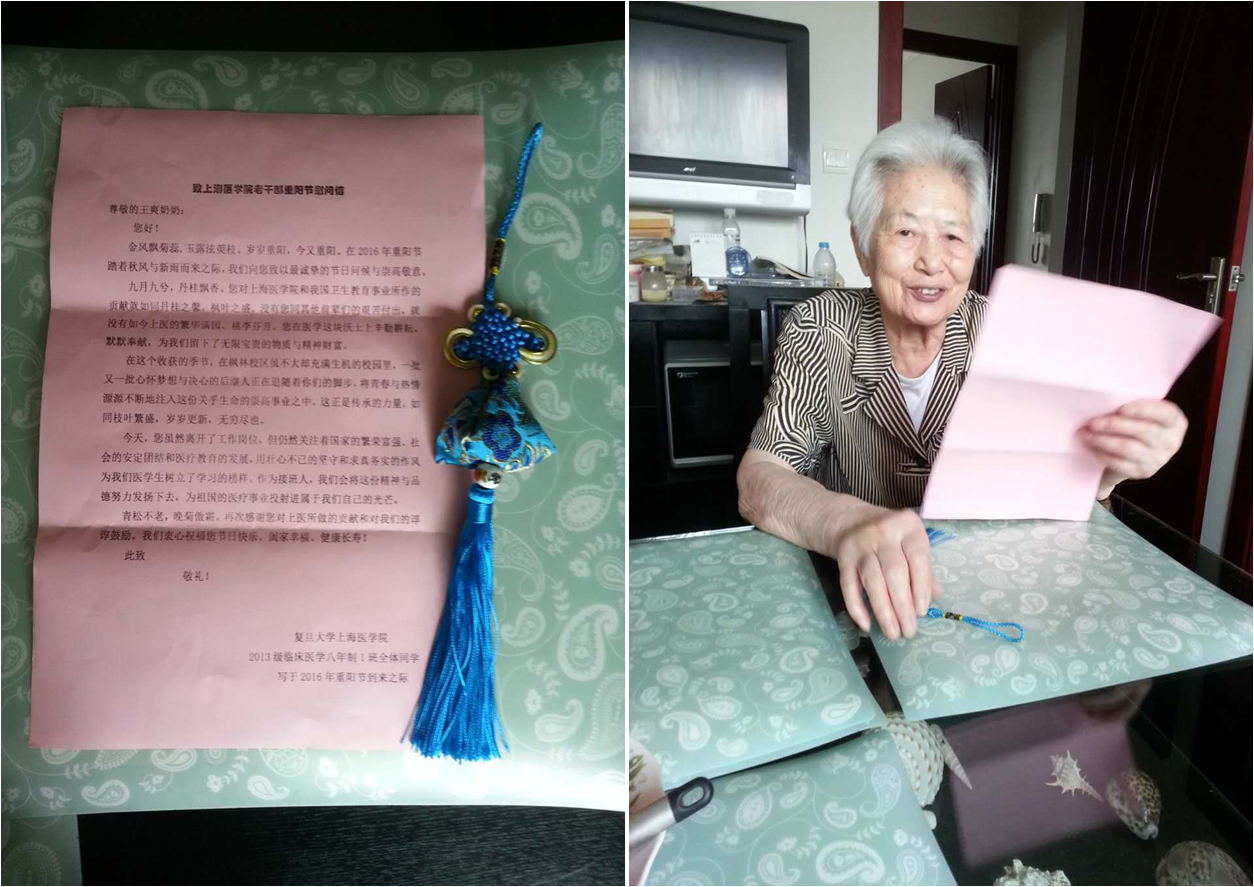 致上海医学院老干部重阳节慰问信
尊敬的王爽奶奶：
您好！
金风飘菊蕊，玉露泫萸枝，岁岁重阳，今又重阳，在 2016 年重阳节
踏着秋风与新雨而来之际，我们向您致以最诚挚的节日问候与崇高敬意。
九月九兮，丹桂飘香。您对上海医学院和我国卫生教育事业所作的
贡献就如同丹桂之馨，枫叶之盛。没有您同其他前辈们的艰苦付出，就
没有如今上医的繁华满园、桃李芬芳。您在医学这块沃土上辛勤耕耘、
默默奉献，为我们留下了无限宝贵的物质与精神财富。
在这个收获的季节，在枫林校区虽不大却充满生机的校园里，一批
又一批心怀梦想与决心的后继人正在追随着你们的脚步，将青春与热情
源源不断地注入这份关乎生命的崇高事业之中。这正是传承的力量，如
同枝叶繁盛，岁岁更新，无穷尽也。
今天，您虽然离开了工作岗位，但仍然关注着国家的繁荣富强、社
会的安定团结和医疗教育的发展，用壮心不已的坚守和求真务实的作风
为我们医学生树立了学习的榜样。作为接班人，我们会将这份精神与品
德努力发扬下去，为祖国的医疗事业投射进属于我们自己的光芒。
青松不老，晚菊傲霜。再次感谢您对上医所做的贡献和对我们的谆
谆鼓励。我们衷心祝福您节日快乐、阖家幸福、健康长寿！
此致
敬礼！
复旦大学上海医学院
2013 级临床医学八年制 1 班全体同学
写于 2016 年重阳节到来之际